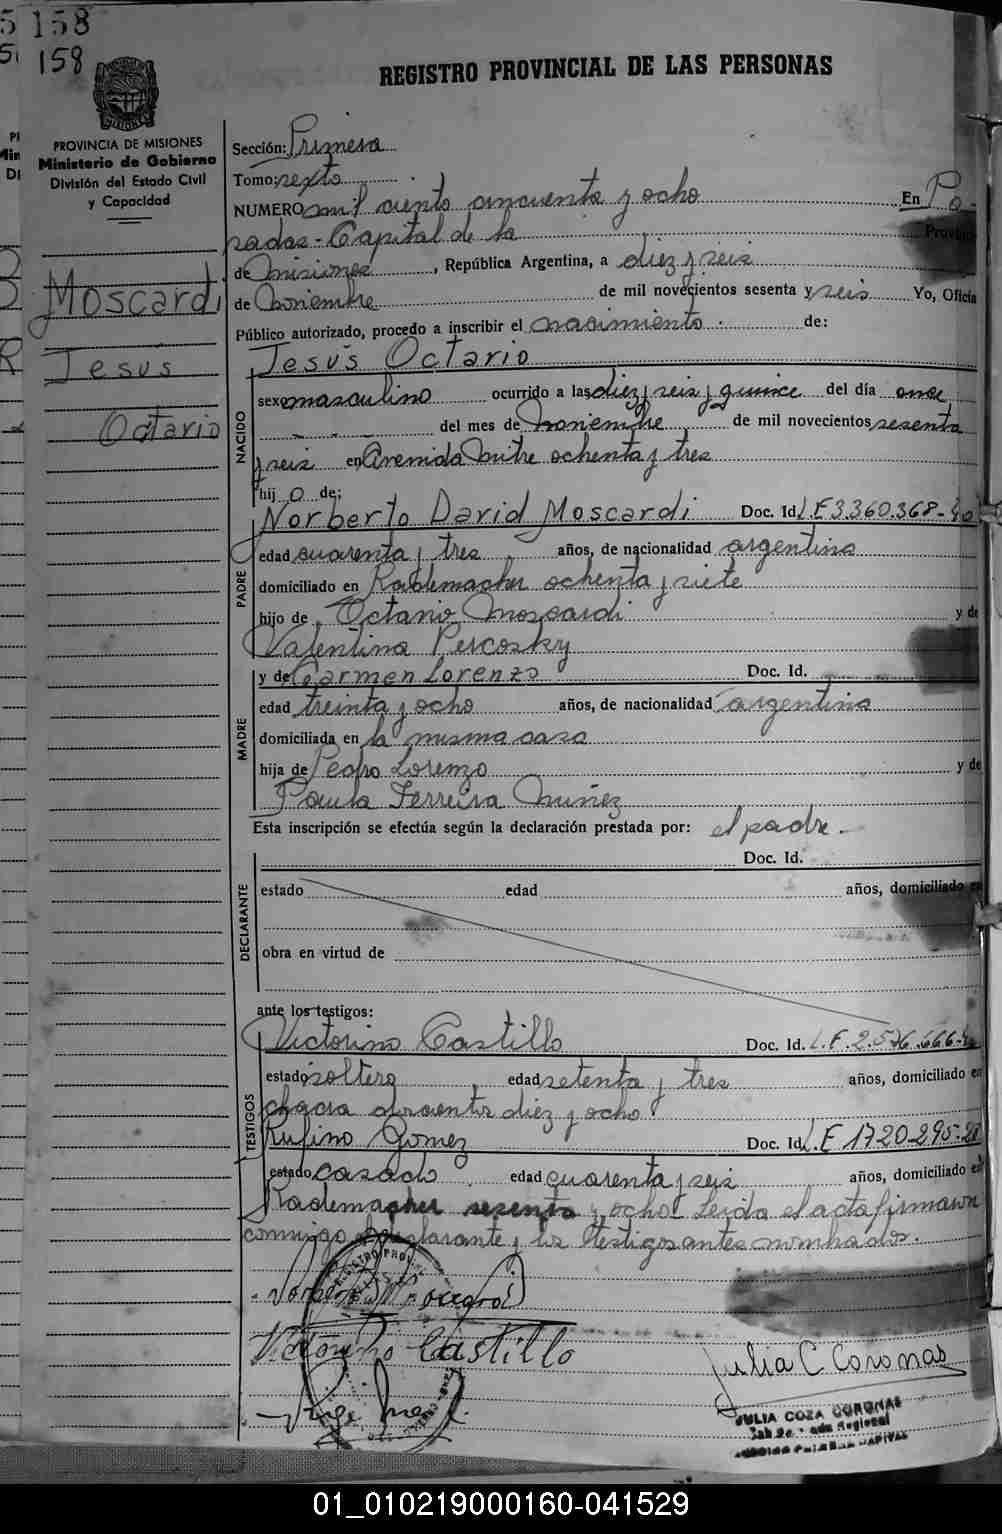 158
158
REGISTRO PROVINCIAL DE LAS PERSONAS
PROVINCIA DE MISIONES
Ministerio de Gobierno
División del Estado Civil
y Capacidad
Moscardi
Jesús
Octavio
Sección: Primera
Tomo: sexto
NUMERO mil ciento cincuenta y ocho En Po-
sadas - Capital de la Provincia
de Misiones, República Argentina, a diez y seis
de noviembre de mil novecientos sesenta y seis Yo, Oficial
Público autorizado, procedo a inscribir el nacimiento de:
Jesús Octavio
NACIDO
sexo masculino ocurrido a las diez y seis y quince del día once
del mes de Noviembre de mil novecientos sesenta
y seis en Avenida Mitre ochenta y tres
hijo de;
Norberto David Moscardi Doc. Id. L.E 3.360.368-
PADRE
edad cuarenta y tres años, de nacionalidad argentina
domiciliado en Rademacher ochenta y siete
hijo de Octavio Moscardi y de
Valentina Percosky
y de Carmen Lorenzo Doc. Id.
MADRE
edad treinta y ocho años, de nacionalidad argentina
domiciliada en la misma casa
hija de Pedro Lorenzo y de
Paula Ferreira Nuñez
Esta inscripción se efectúa según la declaración prestada por: el padre.-
DECLARANTE
Doc. Id.
estado edad años, domiciliado en
obra en virtud de
ante los testigos:
TESTIGOS
Victorino Castillo Doc. Id. L.E. 2.576.666-
estado soltero edad setenta y tres años, domiciliado en
chacra doscientos diez y ocho
Rufino Gomez Doc. Id. L.E 1720295-
estado casado edad cuarenta y seis años, domiciliado en
Rademacher sesenta y ocho - Leída el acta firmaron
conmigo declarante y los testigos antes nombrados.
REGISTRO PROVINCIAL
Victorino Castillo
Julia C Coronas
JULIA COZA CORONAS
01_010219000160-041529